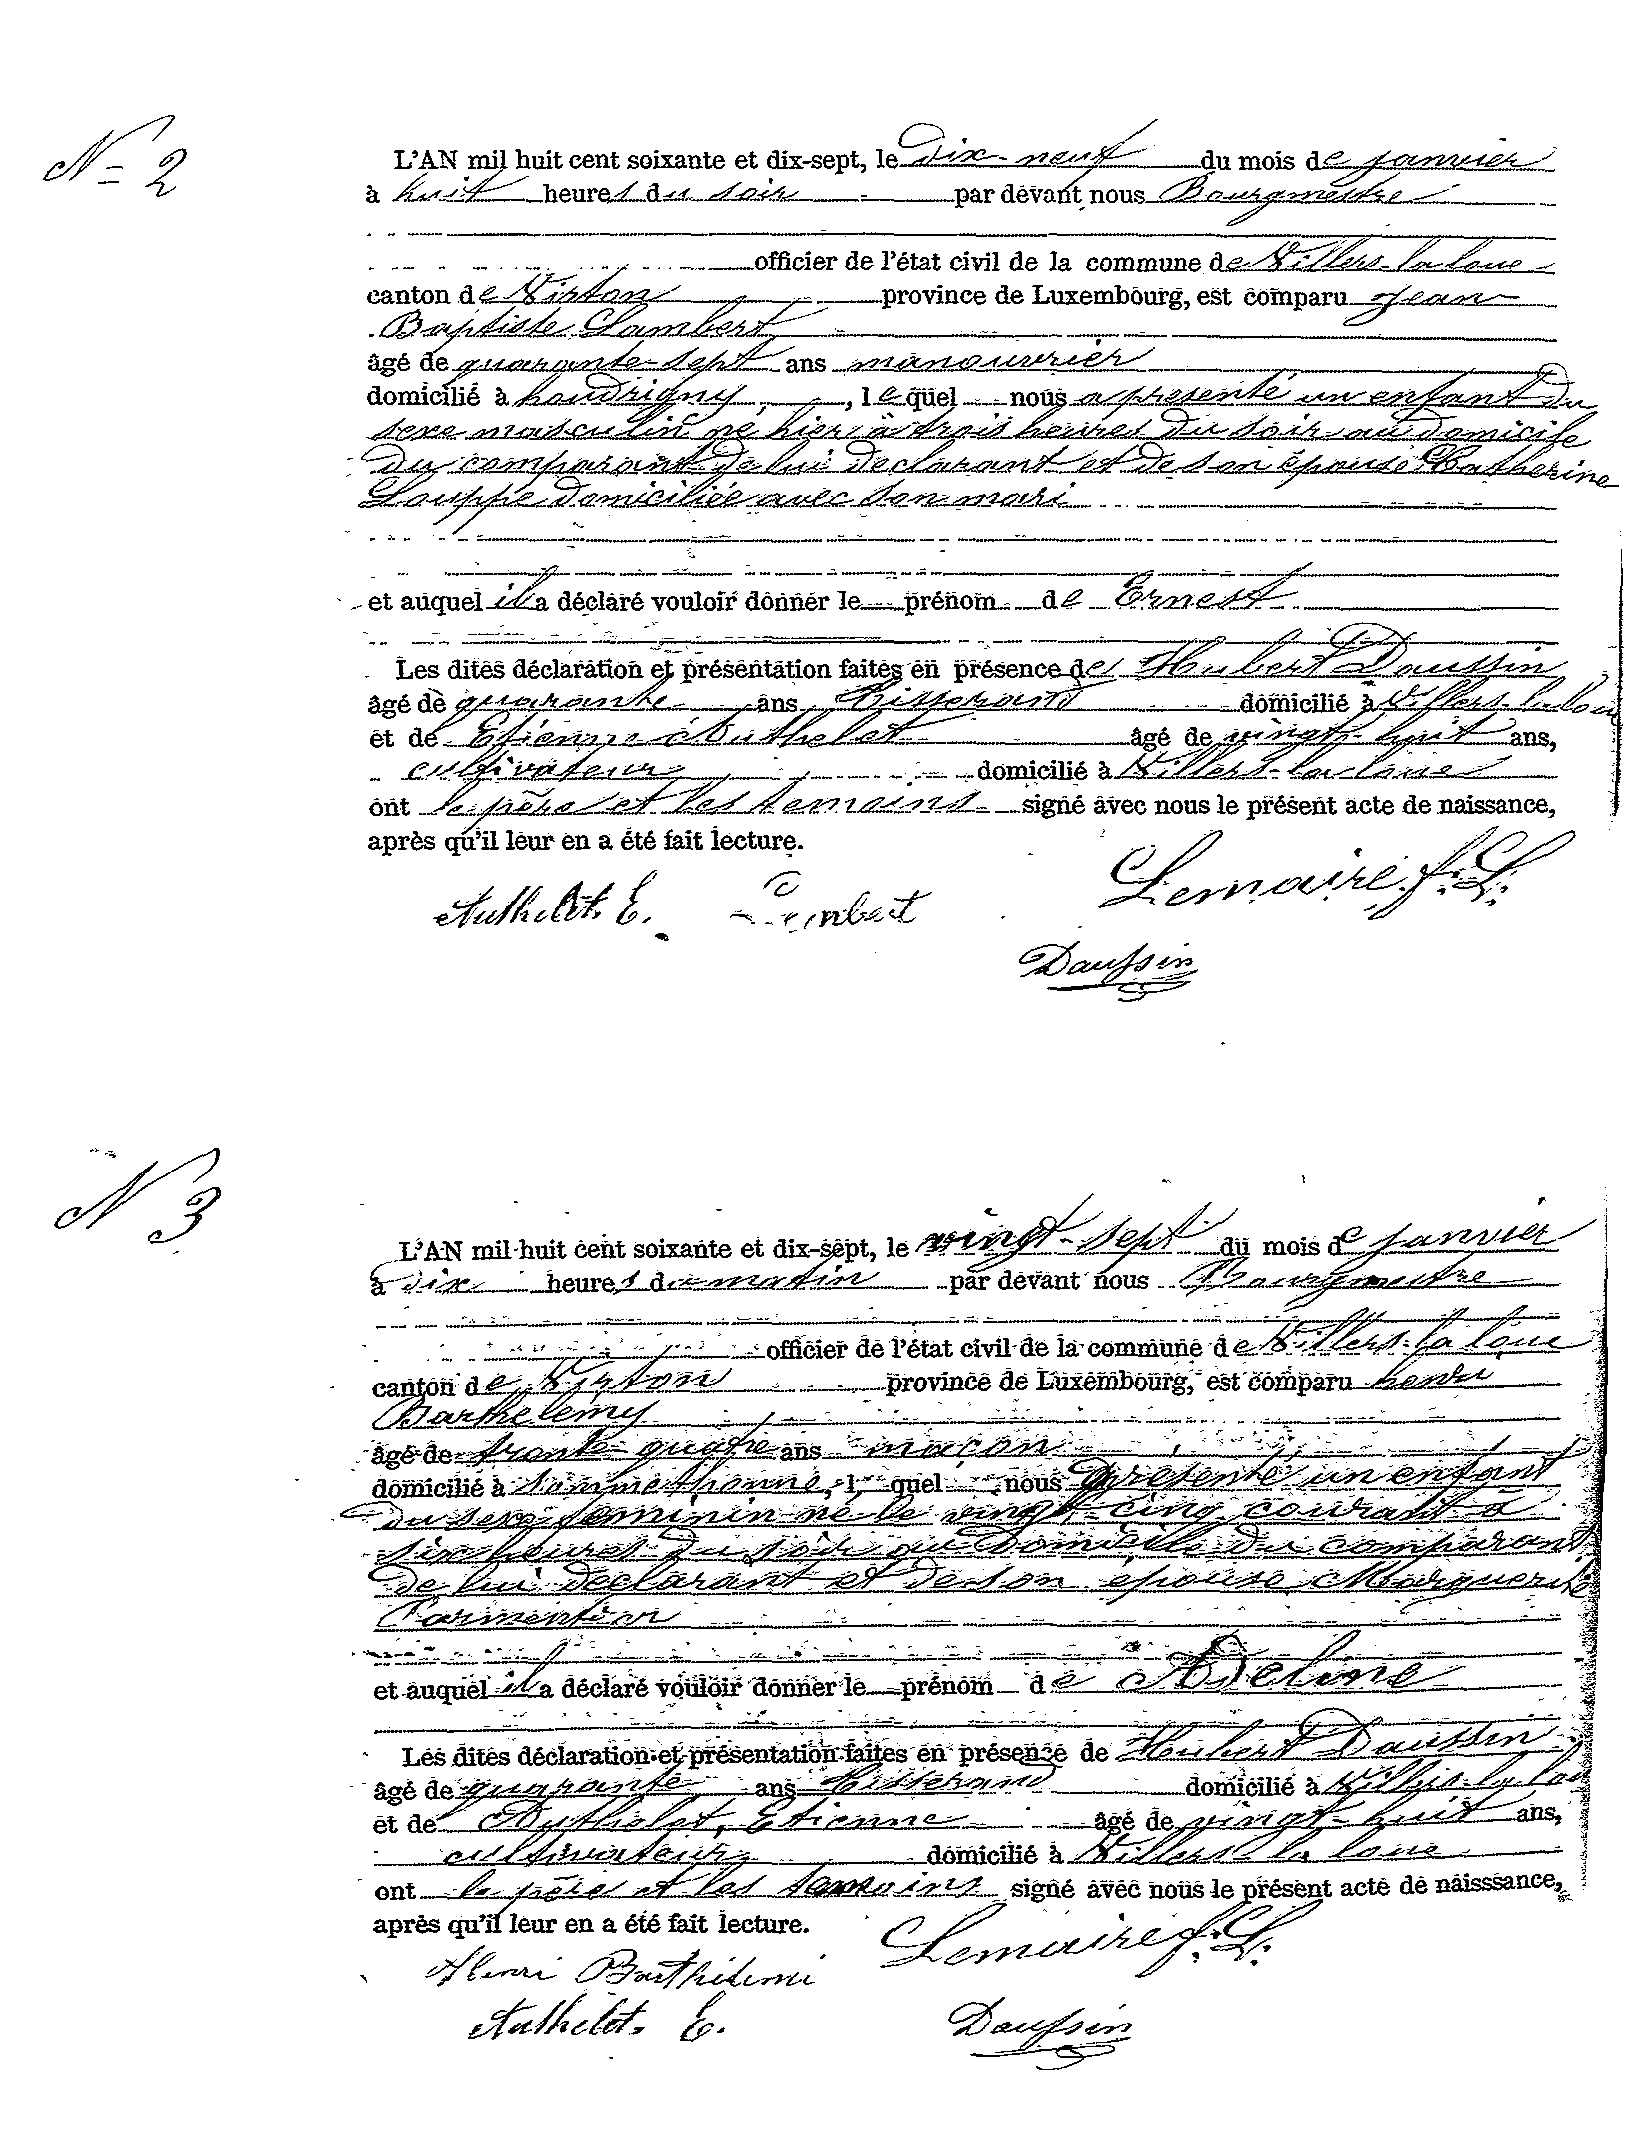 N= 2
L'AN mil huit cent soixante et dix-sept, le Dix-neuf du mois de janvier
à huit heures du soir par devant nous Bourgmestre
officier de l'état civil de la commune de Villers-la-loue
canton de Virton province de Luxembourg, est comparu Jean
Baptiste Lambert
âgé de quarante-sept ans manouvrier
domicilié à houdrigny, lequel nous a présenté un enfant Du
sexe masculin né hier à trois heures Du soir au domicile
Du comparant de lui Declarant et de son épouse Catherine
Louppe domiciliée avec son mari
et auquel il a déclaré vouloir donner le prénom de Ernest
Les dites déclaration et présentation faites en présence de Hubert Daussin
âgé de quarante ans tisserand domicilié à Villers-la-loue
et de Etienne Authelet âgé de vingt-huit ans,
cultivateur domicilié à Villers-la-loue
ont le père et les temoins signé avec nous le présent acte de naissance,
après qu'il leur en a été fait lecture.
Authelet. E. Lambert Lemaire J. L.
Daussin
N 3
L'AN mil huit cent soixante et dix-sept, le vingt-sept du mois de janvier
à dix heures du matin par devant nous Bourgmestre
officier de l'état civil de la commune de Villers-la-loue
canton de Virton province de Luxembourg, est comparu henri
Barthelemy
âgé de trente quatre ans maçon
domicilié à Sommethonne, l quel nous a présenté un enfant
du sexe feminin né le vingt-cinq courant à
six heures Du soir au Domicile Du comparant
de lui declarant et de son épouse Marguerite
Parmentier
et auquel il a déclaré vouloir donner le prénom de Adeline
Les dites déclaration et présentation faites en présence de Hubert Daussin
âgé de quarante ans tisserand domicilié à Villers-la-loue
et de Authelet, Etienne âgé de vingt-huit ans,
cultivateur domicilié à Villers-la loue
ont le père et les temoins signé avec nous le présent acte de naisssance,
après qu'il leur en a été fait lecture.
Henri Barthélemi Lemaire J. L.
Authelet. E. Daussin